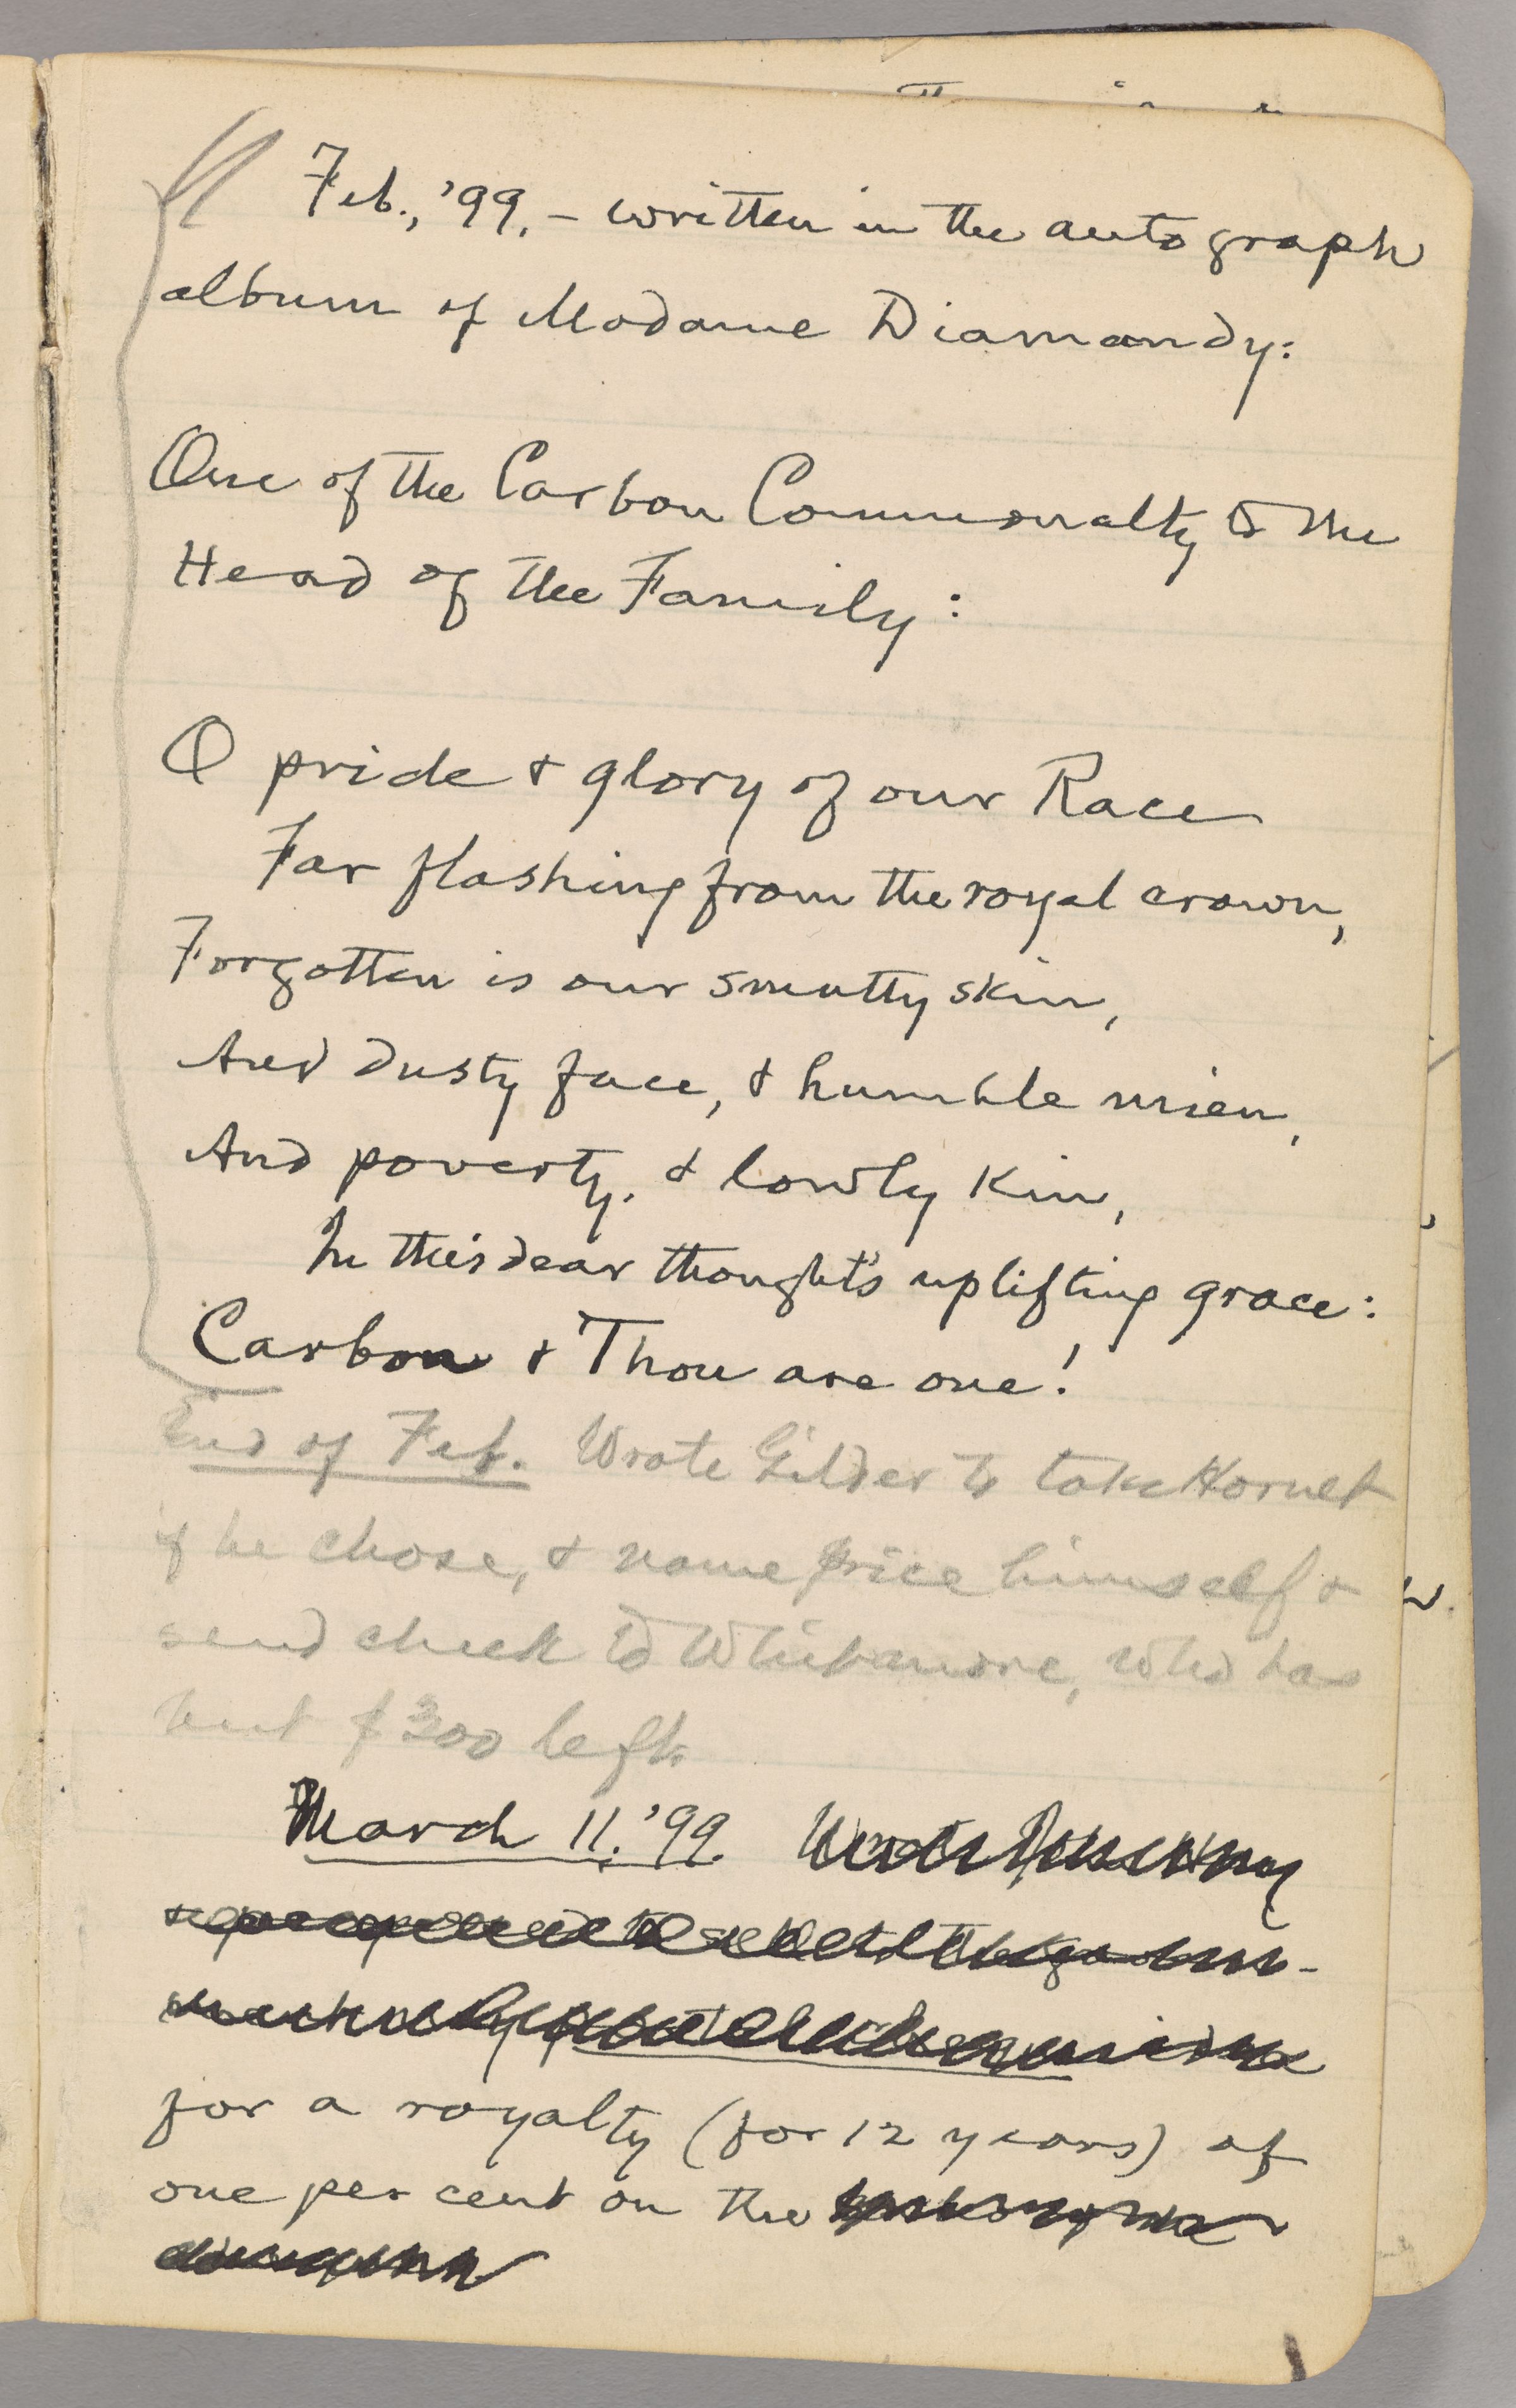 Feb., '99. – written in the autograph
album of Madame Diamandy:
One of the Carbon Commonalty to the
Head of the Family:
O pride & glory of our Race
Far flashing from the royal crown,
Forgotten is our smutty skin,
And dusty face, & humble mien,
And poverty, & lowly kin,
In this dear thought's uplifting grace:
Carbon & Thou are one!
End of Feb. Wrote Gilder to take Hornet
if he chose, & name price himself &
send check to Whitmore, who has
but $300 left.
March 11. '99.
for a royalty (for 12 years) of
one per cent on the